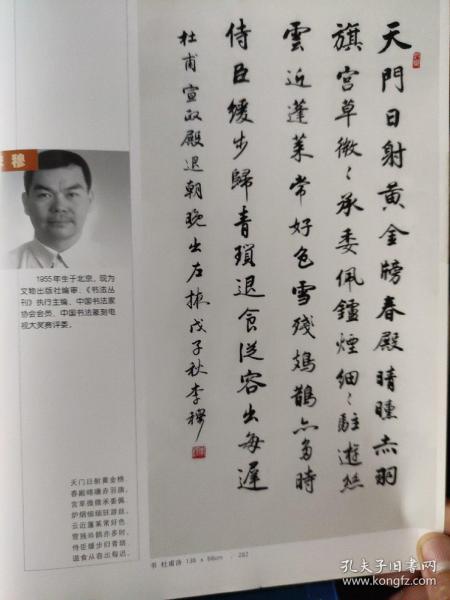 天門日射黃金牓春殿晴曛赤羽
旗宮草微々承委佩鑪煙細々駐遊絲
雲近蓬萊常好色雪殘鳷鵲亦多時
侍臣緩步歸青瑣退食從容出每遲
杜甫宣政殿退朝晚出左掖戊子秋李穆
穆
1955年生于北京。现为
文物出版社编审、《书法丛
刊》执行主编、中国书法家
协会会员、中国书法篆刻电
视大奖赛评委。
天门日射黄金榜,
春殿晴曛赤羽旗。
宫草微微承委佩,
炉烟细细驻游丝。
云近蓬莱常好色,
雪残鳷鹊亦多时。
侍臣缓步归青琐,
退食从容出每迟。
书 杜甫诗 138 x 68cm . 282
孔夫子旧书网